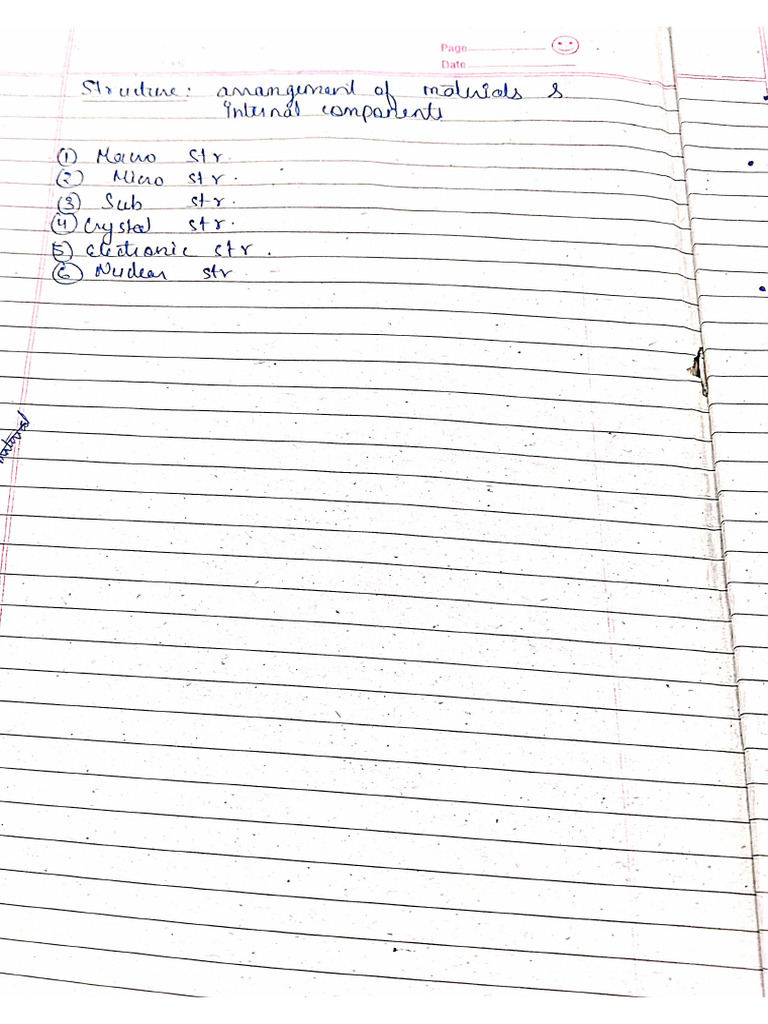 Page
Date
Structure: arrangement of materials &
internal components
① Macro str.
② Micro str.
③ Sub str.
④ Crystal str.
5) electronic str.
⑥ Nuclear str